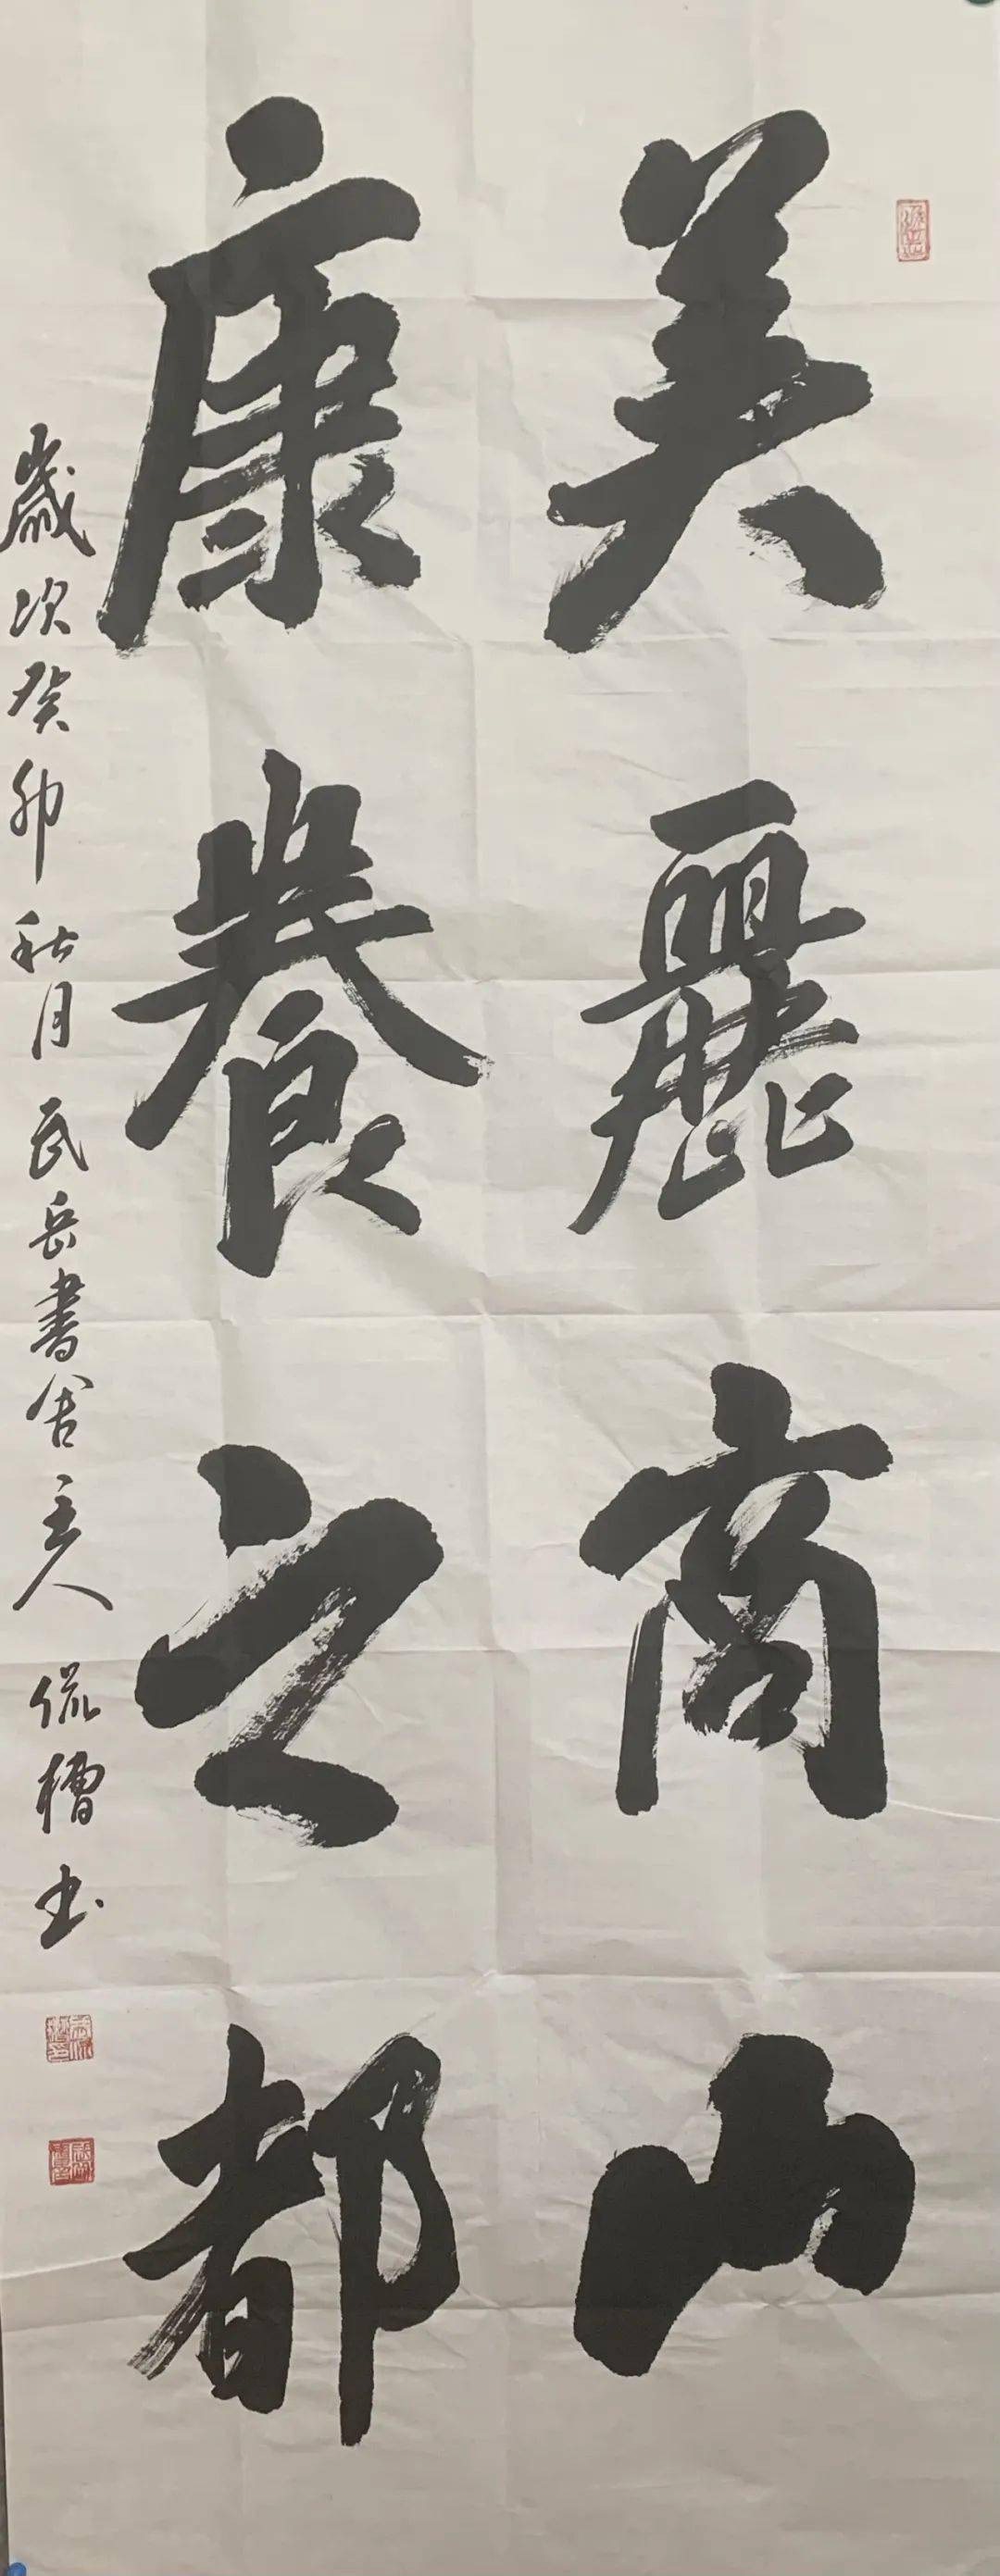 美麗商山
康養之都
歲次癸卯秋月武岳書舍主人侃槽书